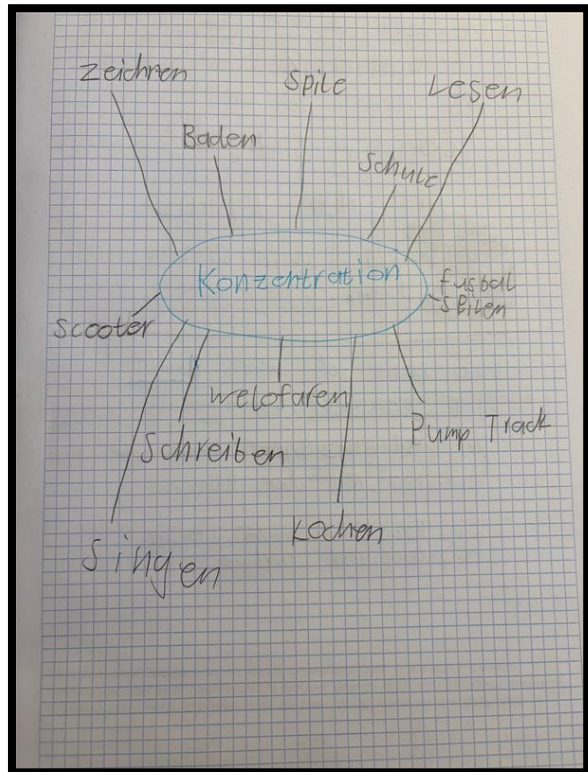 zeichnen
Spile
Lesen
Baden
Schule
Konzentration
fusbal
Spilen
Scooter
welofaren
Pump Track
Schreiben
Kochen
Singen